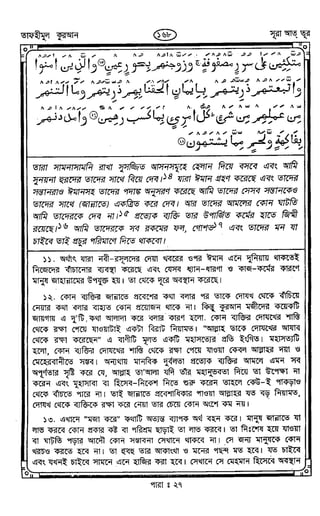 তাফহীমুল কুরআন
১৬৮
সূরা আত্ তূর
مُتَّكِـِٔينَ عَلَىٰ سُرُرٍ مَّصْفُوفَةٍ ۖ وَزَوَّجْنَـٰهُم بِحُورٍ عِينٍ ⑳ وَٱلَّذِينَ ءَامَنُوا۟
وَٱتَّبَعَتْهُمْ ذُرِّيَّتُهُم بِإِيمَـٰنٍ أَلْحَقْنَا بِهِمْ ذُرِّيَّتَهُمْ وَمَآ أَلَتْنَـٰهُم
مِّنْ عَمَلِهِم مِّن شَىْءٍ ۚ كُلُّ ٱمْرِئٍۭ بِمَا كَسَبَ رَهِينٌ ㉑ وَأَمْدَدْنَـٰهُم
بِفَـٰكِهَةٍ وَلَحْمٍ مِّمَّا يَشْتَهُونَ ㉒
তারা সামনাসামনি রাখা সুসজ্জিত আসনসমূহে হেলান দিয়ে বসবে এবং আমি
সুনয়না হুরদের তাদের সাথে বিয়ে দেব।১৪ যারা ঈমান গ্রহণ করেছে এবং তাদের
সন্তানরাও ঈমানসহ তাদের পদাঙ্ক অনুসরণ করেছে আমি তাদের সেসব সন্তানকেও
তাদের সাথে (জান্নাতে) একত্রিত করে দেব। আর তাদের আমলের কোন ঘাটতি
আমি তাদেরকে দেব না।১৫ প্রত্যেক ব্যক্তি তার উপার্জিত কর্মের হাতে জিম্মী
রয়েছে।১৬ আমি তাদেরকে সব রকমের ফল, গোশত১৭ এবং তাদের মন যা
চাইবে তাই প্রচুর পরিমাণে দিতে থাকবো।
১১. অর্থাৎ যারা নবী-রসূলদের দেয়া খবরের ওপর ঈমান এনে দুনিয়ায় থাকতেই
নিজেদের বাঁচানোর ব্যবস্থা করেছে এবং যেসব ধ্যান-ধারণা ও কাজ-কর্মের কারণে
মানুষ জাহান্নামের উপযুক্ত হয়। তা থেকে দূরে অবস্থান করেছে।
১২. কোন ব্যক্তির জান্নাতে প্রবেশের কথা বলার পর তাকে দোযখ থেকে বাঁচিয়ে
নেয়ার কথা বলার বাহ্যত কোন প্রয়োজন থাকে না। কিন্তু কুরআন মজীদের কয়েকটি
জায়গায় এ দু'টি কথা আলাদা করে বলার কারণ হলো, কোন ব্যক্তির দোযখের শাস্তি
থেকে রক্ষা পেয়ে যাওয়াটাই একটা বিরাট নিয়ামত। "আল্লাহ তাকে দোযখের আযাব
থেকে রক্ষা করেছেন" এ বাণীটি মূলত একটি মহাসত্যের প্রতি ইংগিত। মহাসত্যটি
হলো, কোন ব্যক্তির দোযখের শাস্তি থেকে রক্ষা পেয়ে যাওয়া কেবল আল্লাহর দয়া ও
মেহেরবানীতে সম্ভব। অন্যথায় মানবিক দুর্বলতা প্রত্যেক ব্যক্তির আমলে এমন সব
অপূর্ণতার সৃষ্টি করে যে, আল্লাহ তা'আলা যদি তাঁর মহানুভবতা দিয়ে তা উপেক্ষা না
করেন এবং মুহাসাবা বা হিসেব-নিকেশ নিতে শুরু করেন তাহলে কেউ-ই পাকড়াও
থেকে বাঁচতে পারে না। তাই জান্নাতে প্রবেশাধিকার পাওয়া আল্লাহর যত বড় নিয়ামত,
দোযখ থেকে ব্যক্তিকে রক্ষা করে নেয়া তার চেয়ে কোন অংশে কম নয়।
১৩. এখানে "মজা করে" কথাটি অত্যন্ত ব্যাপক অর্থ বহন করে। মানুষ জান্নাতে যা
লাভ করবে কোন প্রকার কষ্ট বা পরিশ্রম ছাড়াই তা লাভ করবে। তা নিঃশেষ হয়ে যাওয়া
বা ঘাটতি পড়ার আদৌ কোন সম্ভাবনা সেখানে থাকবে না। সে জন্য মানুষকে কোন
খরচও করতে হবে না। তা হুবহু তার আকাংখা ও মনের পছন্দ মত হবে। যত চাইবে
এবং যখনই চাইবে সামনে এনে হাজির করা হবে। সেখানে সে মেহমান হিসেবে অবস্থান
পারা : ২৭